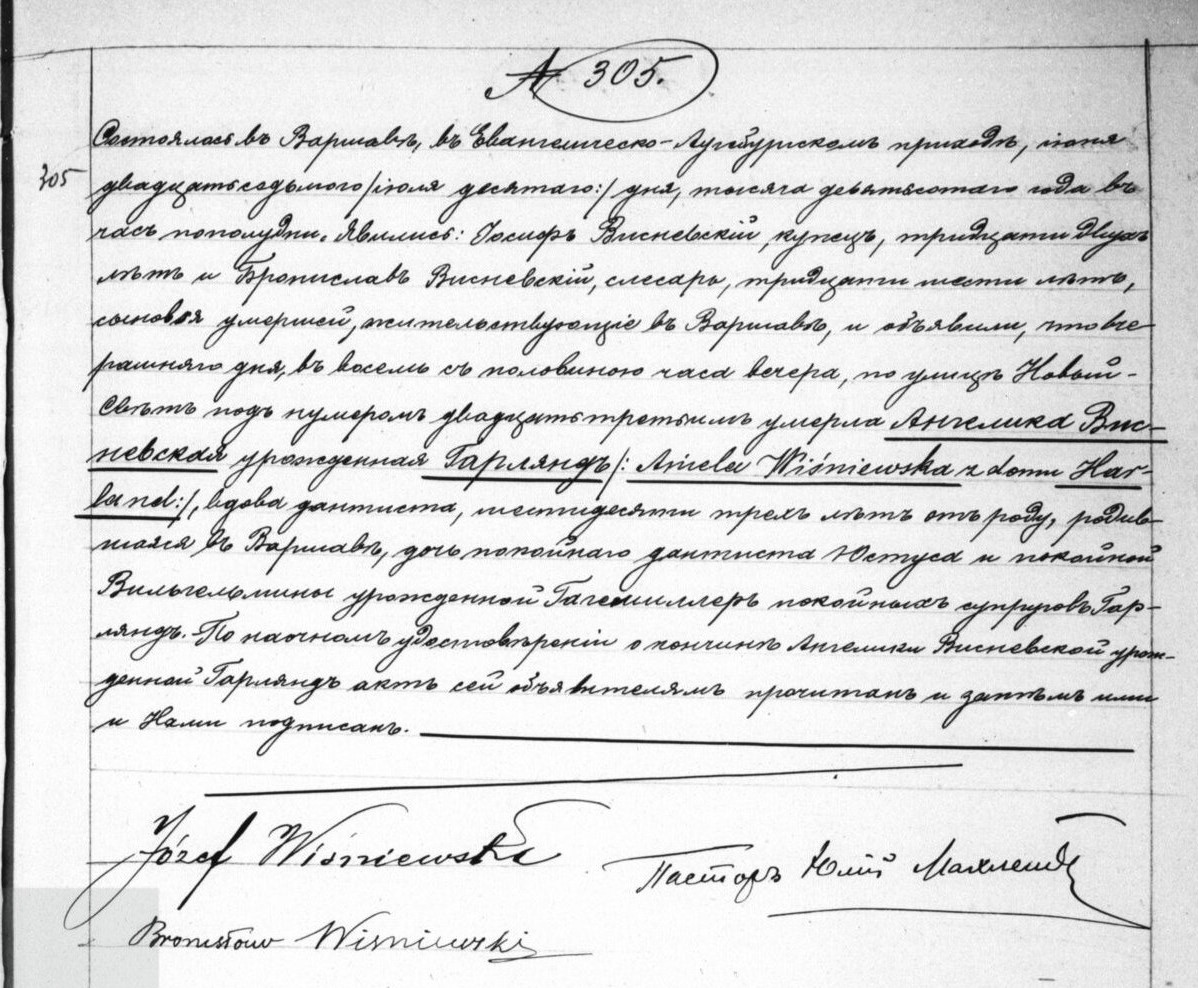 № 305.
305
Состоялась въ Варшавѣ, въ Евангелическо-Аугсбургскомъ приходѣ, іюня
двадцать седьмого /іюля десятаго:/ дня, тысяча девятьсотаго года въ
часъ пополудни. Явились: Іосифъ Висневскій, купецъ, тридцати двухъ
лѣтъ и Брониславъ Висневскій, слесарь, тридцати шести лѣтъ,
сыновья умершей, жительствующіе въ Варшавѣ, и объявили, что вче-
рашняго дня, въ восемь съ половиною часа вечера, по улицѣ Новый-
Свѣтъ подъ нумеромъ двадцать третьимъ умерла Ангелика Вис-
невская урожденная Гарляндъ /: Aniela Wiśniewska z domu Har-
land:/, вдова дантиста, шестидесяти трехъ лѣтъ отъ роду, родив-
шаяся въ Варшавѣ, дочь покойнаго дантиста Юстуса и покойной
Вильгельмины урожденной Гагемиллеръ покойныхъ супруговъ Гар-
ляндъ. - По наочномъ удостовѣреніи о кончинѣ Ангелики Висневской урож-
денной Гарляндъ актъ сей объявителямъ прочитанъ и затѣмъ ими
и Нами подписанъ.
Józef Wiśniewski
Пасторъ Юлій Махлейд
Bronisław Wiśniewski